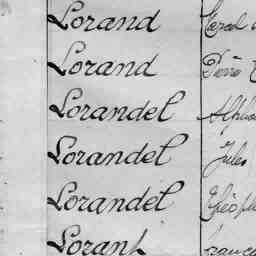 Lorand
Lorand
Lorandel Alph
Lorandel Jules
Lorandel Théoph
Lorant